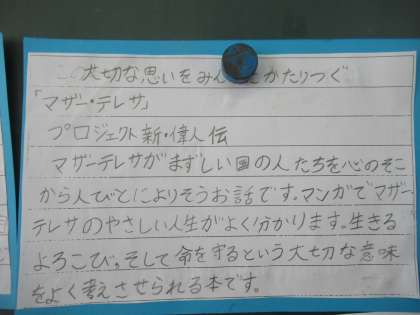 この大切な思いをみんなとかたりつぐ
「マザー・テレサ」
プロジェクト新・偉人伝
マザーテレサがまずしい国の人たちを心のそこ
から人びとによりそうお話です。マンガでマザー
テレサのやさしい人生がよく分かります。生きる
よろこび。そして命を守るという大切な意味
をよく考えさせられる本です。